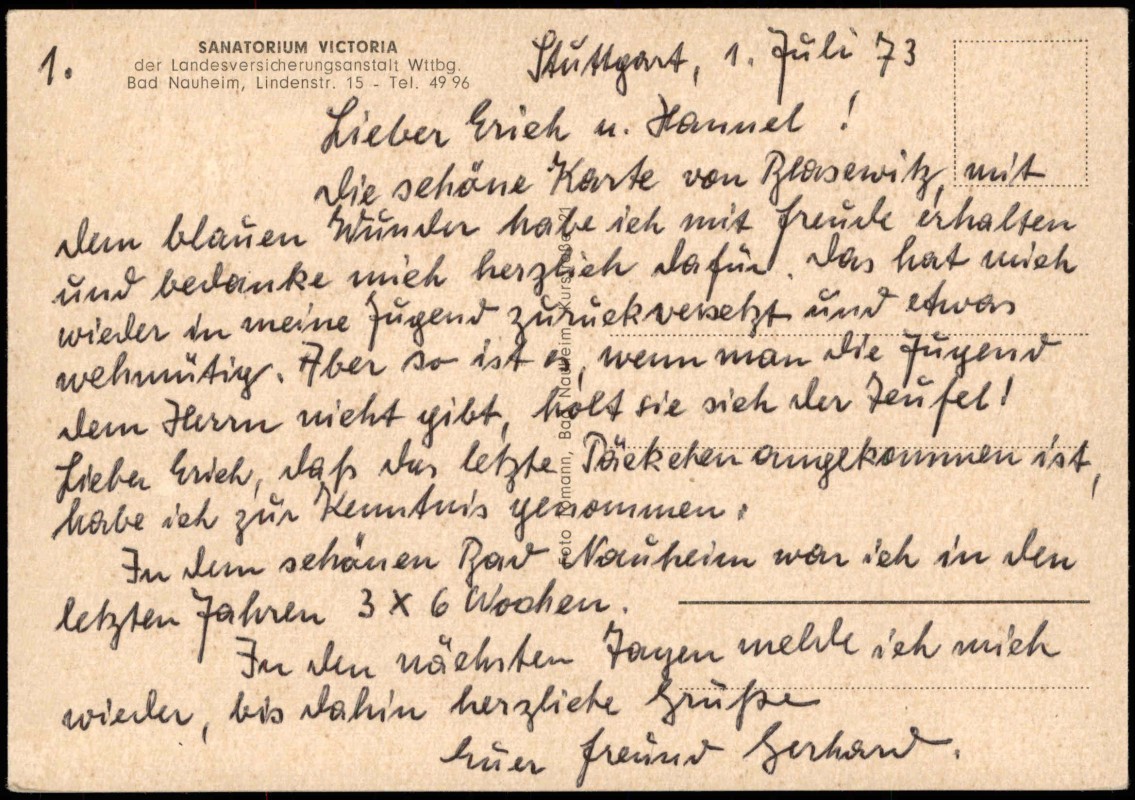 1.
SANATORIUM VICTORIA
der Landesversicherungsanstalt Wttbg.
Bad Nauheim, Lindenstr. 15 - Tel. 49 96
Stuttgart, 1. Juli 73
Lieber Erich u. Hannel !
Die schöne Karte von Blasewitz, mit
dem blauen Wunder habe ich mit Freude erhalten
und bedanke mich herzlich dafür. Das hat mich
wieder in meine Jugend zurückversetzt und etwas
wehmütig. Aber so ist es, wenn man die Jugend
dem Herrn nicht gibt, holt sie sich der Teufel!
Lieber Erich, daß das letzte Päckchen angekommen ist,
habe ich zur Kenntnis genommen.
In dem schönen Bad Nauheim war ich in den
letzten Jahren 3 X 6 Wochen.
In den nächsten Tagen melde ich mich
wieder, bis dahin herzliche Grüße
Euer Freund Gerhard.
Bad Nauheim, Kurstraße 21